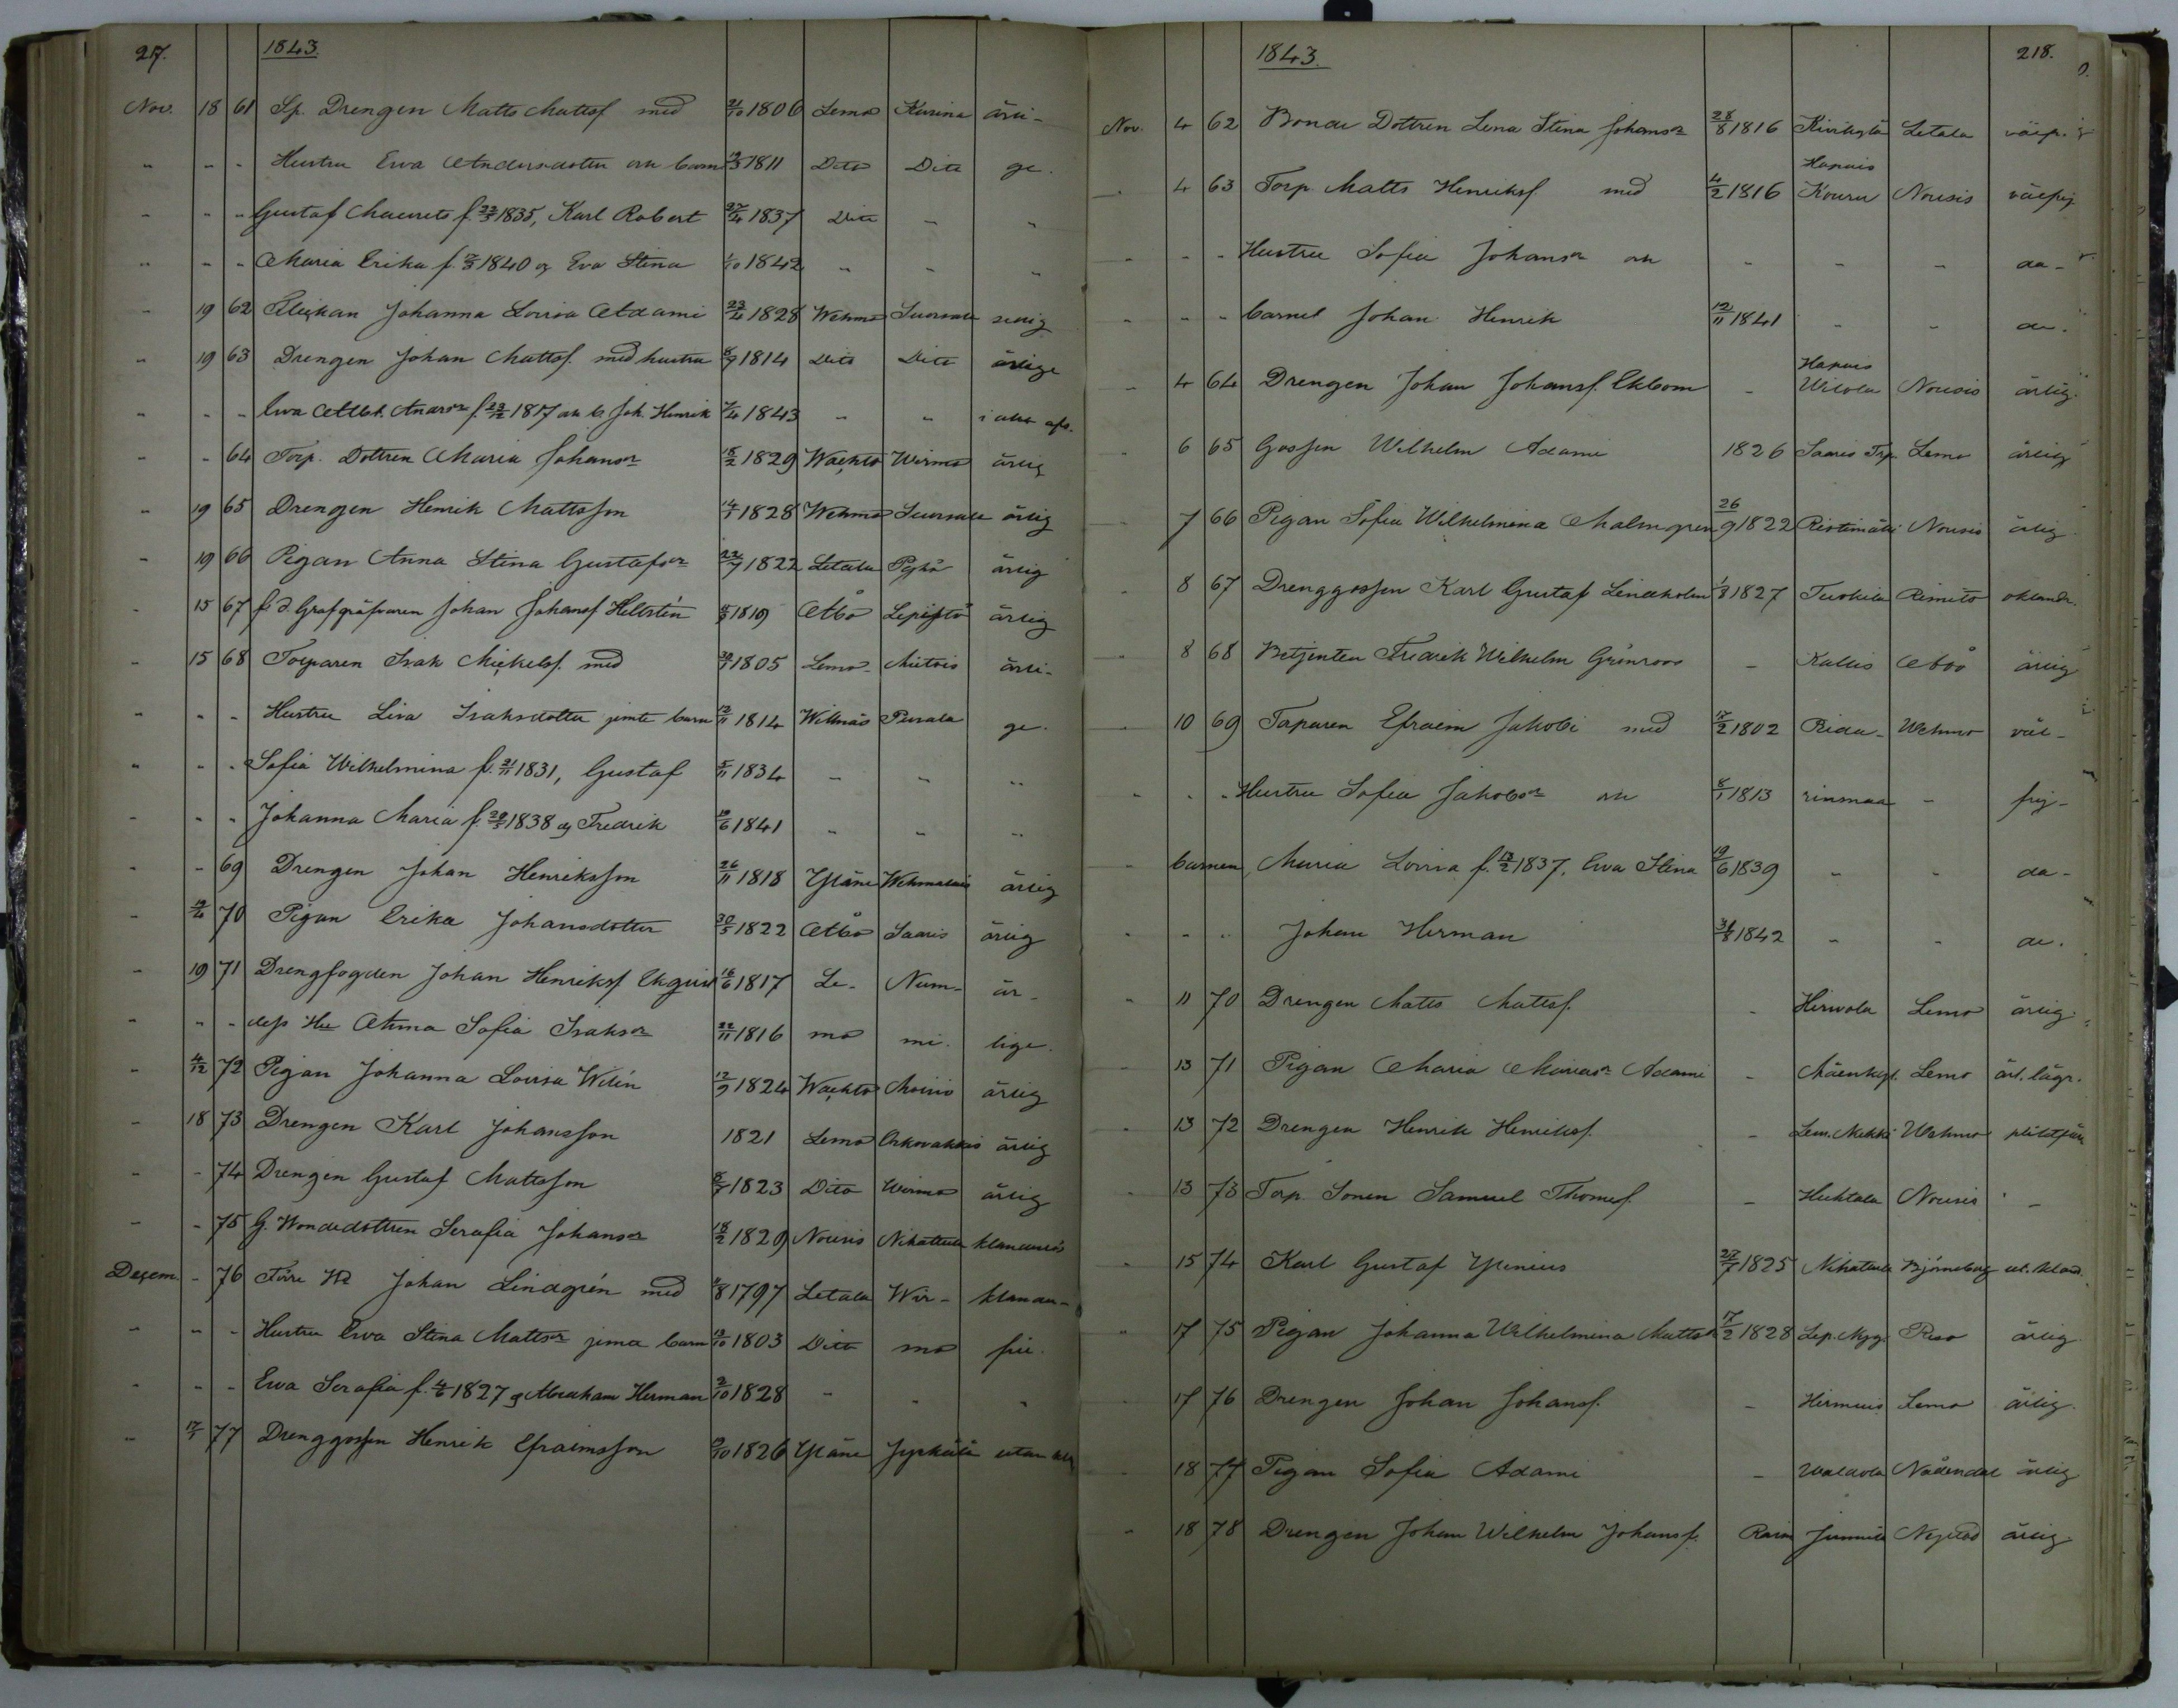 217. 1843.
Nov. 18 61 Sp. Drengen Matts Mattsf med 21/10 1806 Lemo Karina ärli-
" - - Hustru Ewa Andersdotter och barn 1811 Dito Dito ge.
" " " Gustaf Maurets f. 1835, Karl Robert 27/4 1837 Dito - "
" " " Maria Erika f. 1840 og Eva Stina 1/10 1842 " " "
" 19 62 Flickan Johanna Lovisa Adami 23/4 1828 Wehmo sedig
" 19 63 Drengen Johan Mattsf. med hustru 1814 Dito Dito ärlige
" " " Ewa Andersr f. 23/12 1817 Joh. Henrik 1843 " "
" - 64 Torp. Dottren Maria Johansr 18/2 1829 Wirmo ärlig
" 19 65 Drengen Henrik Mattsson 1828 Wehmo ärlig
" 19 66 Pigan Anna Stina Gustafsr 1822 Letala ärlig
" 15 67 f. d. Johan Johansf Hellstén 1819 Åbo ärlig
" 15 68 Torparen Isak Mickelsf. med 1805 Lemo Mietois ärli-
" " " Hustru Lisa Isaksdotter jemte barn 12/11 1814 Willnäs ge.
" " " Sofia Wilhelmina f. 21/11 1831, Gustaf 5/11 1834 - " "
" " " Johanna Maria f. 1838 og Fredrik 10/6 1841 " " "
" - 69 Drengen Johan Henriksson 26/11 1818 Yläne Wehmalais ärlig
" 70 Pigan Erika Johansdotter 30/5 1822 Åbo Saaris ärlig
" 19 71 Drengfogden Johan Henriksf 16/6 1817 Le- Num- är-
" " " dess Hu Anna Sofia Isaksr 22/11 1816 mo mi. lige.
" 4/12 72 Pigan Johanna Lovisa Welin 12/9 1824 ärlig
- 18 73 Drengen Karl Johansson 1821 Lemo ärlig
- - 74 Drengen Gustaf Mattsson 1823 Dito Wirmo ärlig
- - 75 Serafia Johansr 18/2 1829 Nousis Nihattula
Decem. - 76 Johan Lindgrén med 1797 Letala Wir- klander-
" " " Hustru Ewa Stina Mattsr jemte barn 13/10 1803 Dito mo fri.
" " " Ewa Serafia f. 1827 & Abraham Herman 2/10 1828 " " "
" 77 Drenggossen Henrik Efraimsson 1826 Yläne utan
1843. 218.
Nov. 4 62 Bonde Dottren Lena Stina Johansr 28/8 1816 Kivikylä Letala
- 4 63 Torp. Matts Henriksf med 4/2 1816 Kouru Nousis
" " " Hustru Sofia Johansr - - - do-
" - " barnet Johan Henrik 12/11 1841 - - do.
- 4 64 Drengen Johan Johansf. Ekbom - Nousis ärlig.
6 65 Gossen Wilhelm Adami 1826 Saaris Trp. Lemo ärlig
7 66 Pigan Sofia Wilhelmina Malmgren 26/9 1822 Ristimäki Nousis ärlig
8 67 Drenggossen Karl Gustaf Lindholm 1827 Rimito oklandr.
8 68 Betjenten Fredrik Wilhelm Grönroos - Kallis Åbo ärlig
10 69 Torparen Efraim Jakobi med 17/2 1802 Wehmo väl-
" " " Hustru Sofia Jakobsr 8/1 1813 rinmaa - frej-
" barnen, Maria Lovisa f. 1837, Ewa Stina 19/6 1839 " " do-
" - " Johan Herman 1842 " " do.
" 11 70 Drengen Matts Mattsf. - Hirvola Lemo ärlig.
- 13 71 Pigan Maria Mariasr Adami - Lemo
- 13 72 Drengen Henrik Henriksf. - Wehmo
" 13 73 Torp. Sonen Samuel Thomsf. - Huhtala Nousis -
" 15 74 Karl Gustaf 27/7 1825 Nihattula Björneborg
" 17 75 Pigan Johanna Wilhelmina 17/2 1828 ärlig
- 17 76 Drengen Johan Johansf. - Lemo ärlig.
- 18 77 Pigan Sofia Adami - Nådendal ärlig
" 18 78 Drengen Johan Wilhelm Johansf. Nystad ärlig